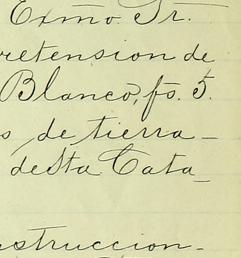 Exmo. Sr.
retension de
Blanco, fs. 5.
s de tierra
desta Cata_
struccion.